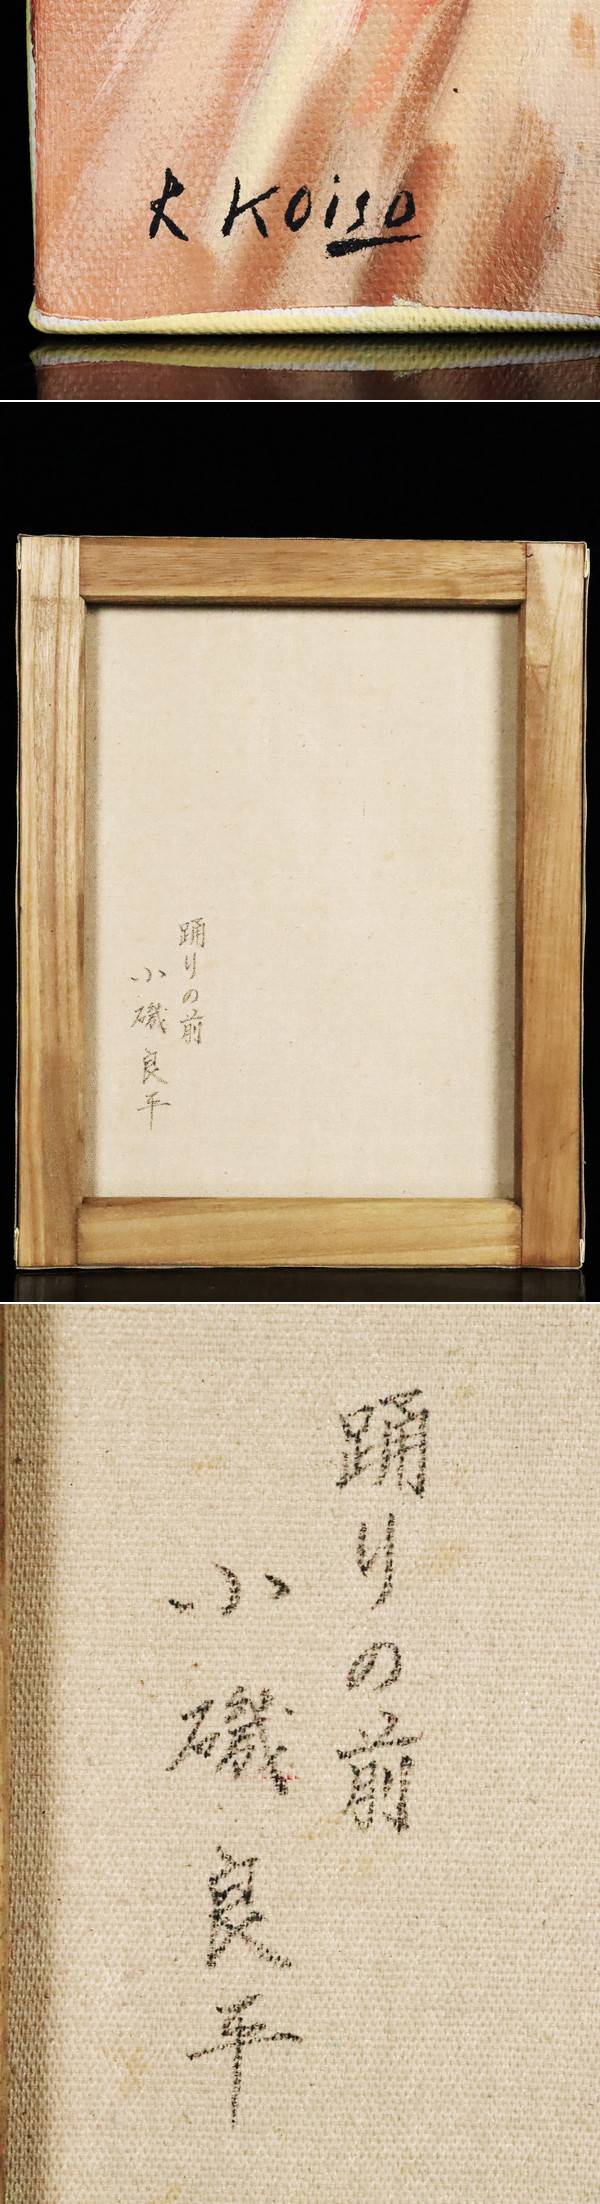 R Koiso
踊りの前
小磯良平
踊りの前
小磯良平